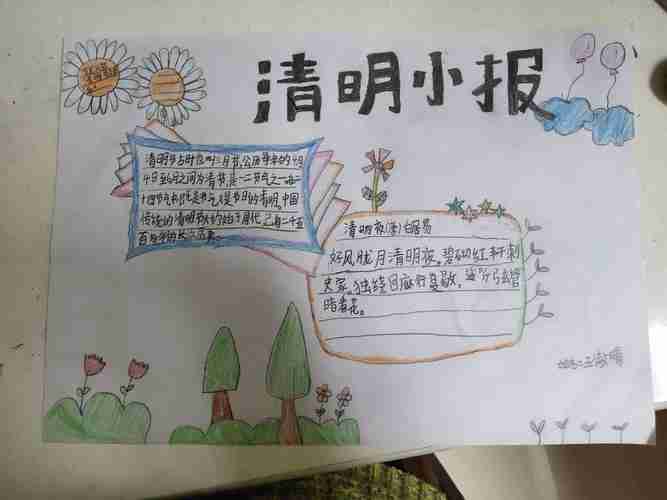 清明小报
清明节古时也叫三月节,公历每年的4月
4日至6日之间为清明节,是二十四节气之一。在二
十四节气中,既是节气又是节日的清明。中国
传统的清明节大约始于周代,已有二千五
百多年的历史。
清明夜(唐)白居易
好风胧月清明夜,碧砌红轩刺
史家。独绕回廊行复歇,遥听弦管
暗看花。